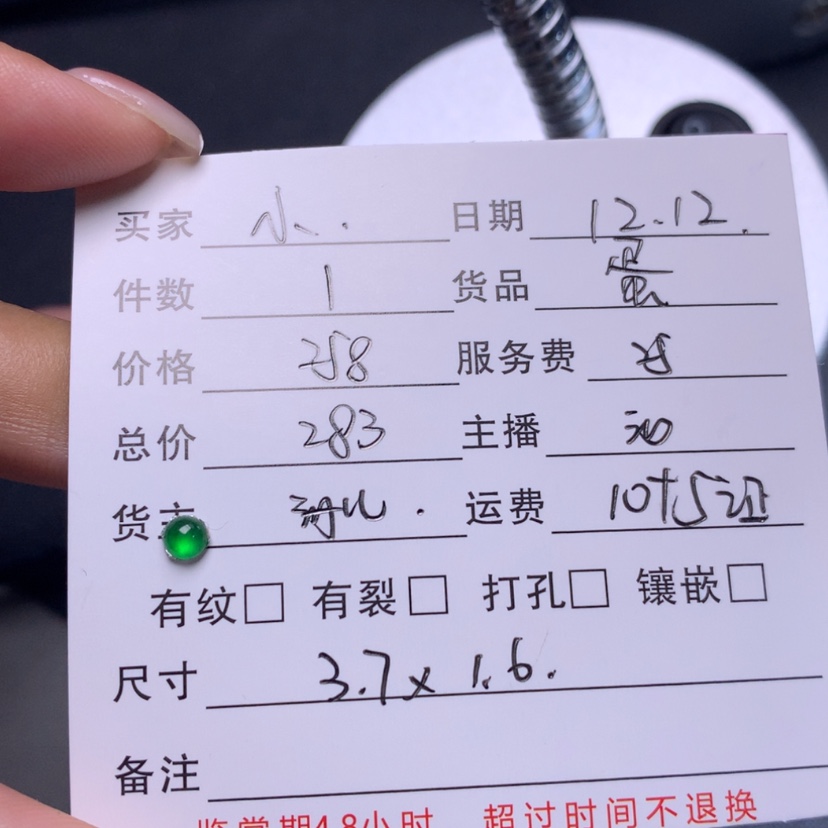 买家 小. 日期 12.12.
件数 1 货品 蛋
价格 258 服务费 25
总价 283 主播
货主 运费 10+5证
有纹□ 有裂□ 打孔□ 镶嵌□
尺寸 3.7x1.6.
备注
鉴赏期48小时 超过时间不退换